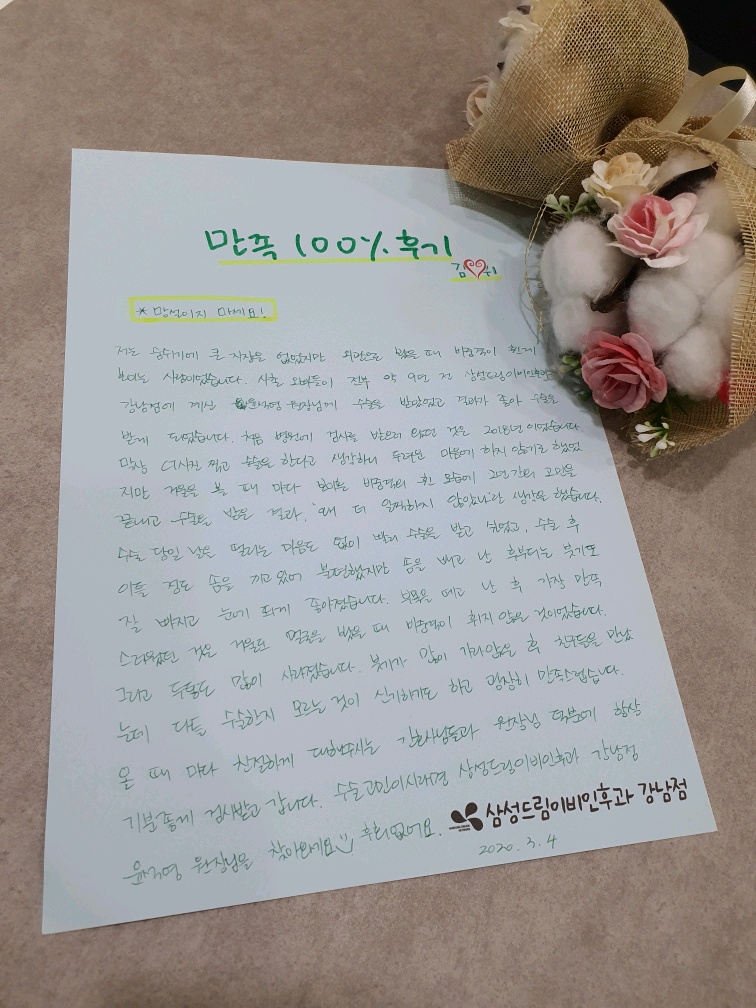 만족 100% 후기
김♡위
* 망설이지 마세요!
저는 숨쉬기에 큰 지장은 없었지만 외관으로 봤을 때 비중격이 휜게
보이는 사람이었습니다. 사촌 오빠들이 전부 약 9년 전 삼성드림이비인후과
강남점에 계신 원장님께 수술을 받았었고 결과가 좋아 수술을
받게 되었습니다. 처음 병원에 검사를 받으러 왔던 것은 2018년이었습니다
막상 CT사진 찍고 수술을 한다고 생각하니 두려운 마음에 하지 않기로 했었
지만 거울을 볼 때 마다 보이는 비중격의 휜 모습에 2년간의 고민을
끝내고 수술을 받은 결과, '왜 더 일찍하지 않았나'란 생각을 했습니다.
수술 당일 날은 떨리는 마음도 없이 빨리 수술을 받고 싶었고, 수술 후
이틀 정도 솜을 끼고 있어 불편했지만 솜을 빼고 난 후부터는 붓기도
잘 빠지고 눈에 띄게 좋아졌습니다. 부목을 떼고 난 후 가장 만족
스러웠던 것은 거울로 얼굴을 봤을 때 비중격이 휘지 않은 것이었습니다.
그리고 두통도 많이 사라졌습니다. 붓기가 많이 가라앉은 후 친구들을 만났
는데 다들 수술한지 모르는 것이 신기하기도 하고 굉장히 만족스럽습니다.
올 때 마다 친절하게 대해주시는 간호사님들과 원장님 덕분에 항상
기분좋게 검사받고 갑니다. 수술고민이시라면 삼성드림이비인후과 강남점
원장님을 찾아와세요:) 후회없어요.
삼성드림이비인후과 강남점
2020. 3. 4